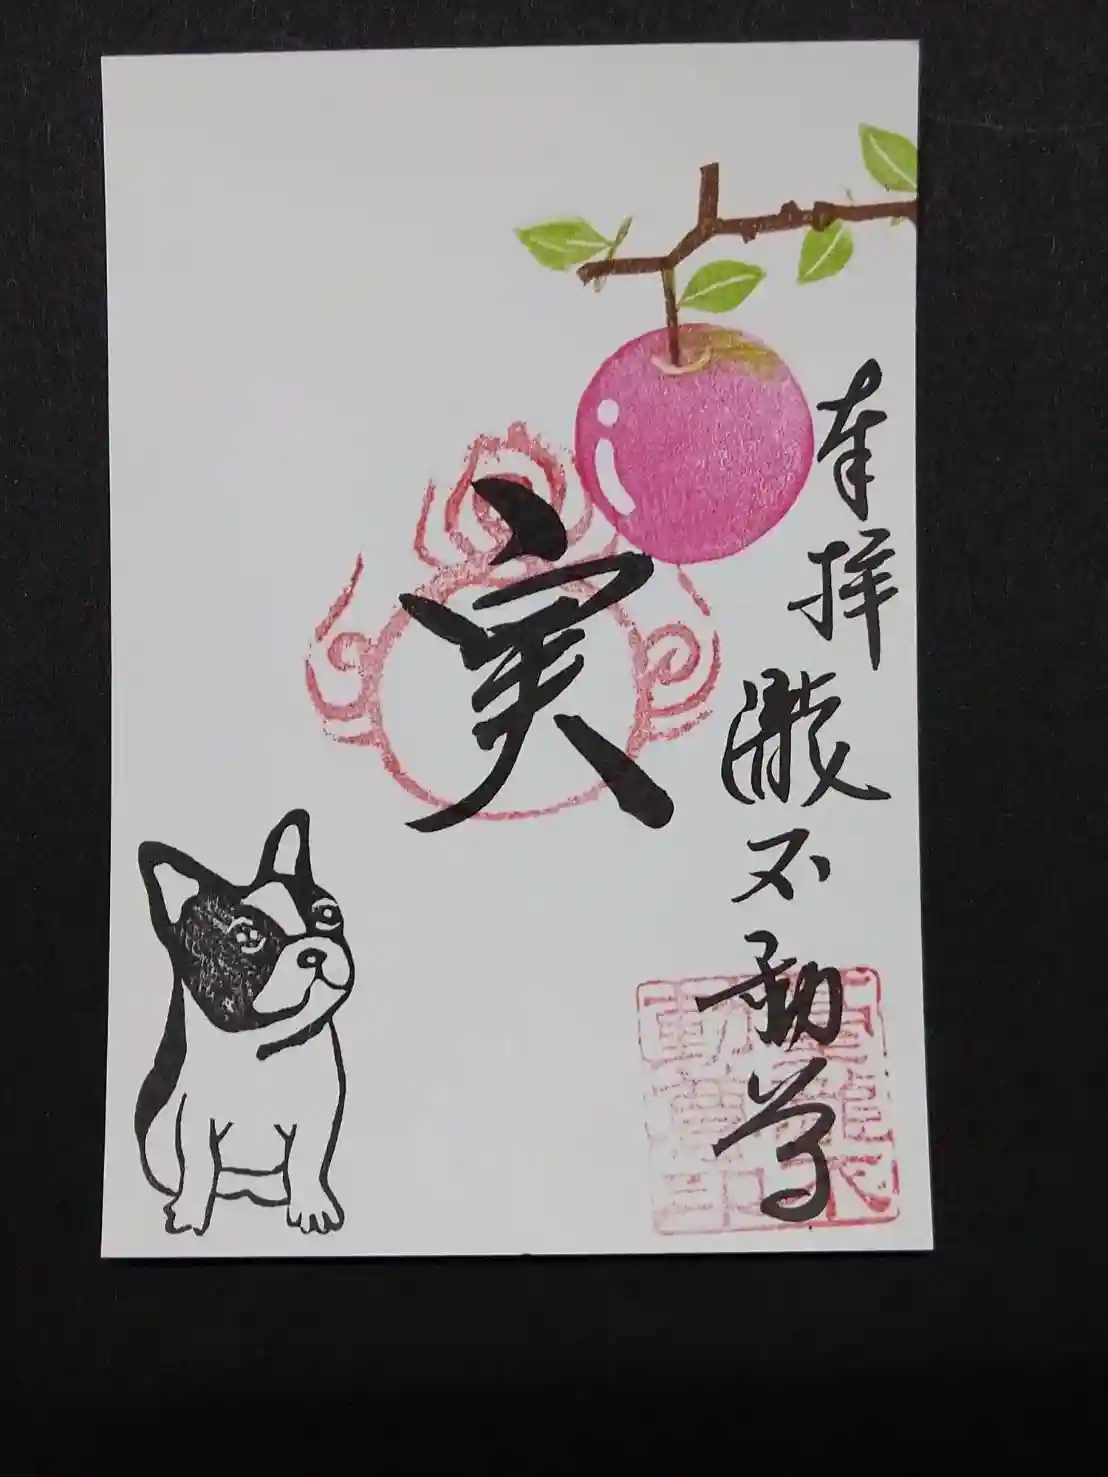 奉拝
瀧不動尊
実